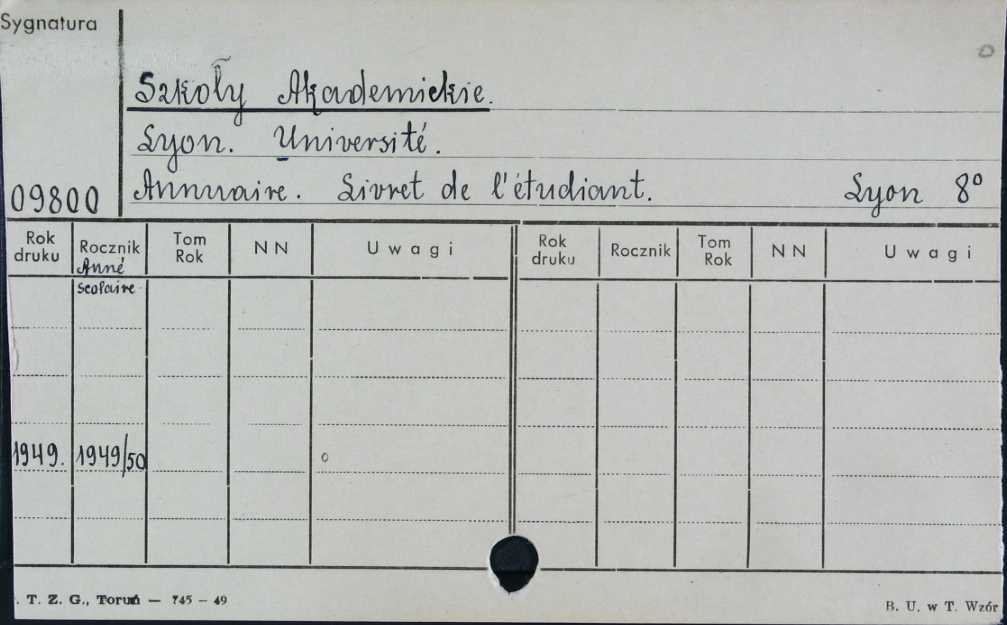 Sygnatura
Szkoły Akademickie.
Lyon. Université.
09800 Annuaire. Livret de l'étudiant. Lyon 8°
Rok druku Rocznik Tom Rok NN Uwagi Rok druku Rocznik Tom Rok NN Uwagi
Anné
scolaire
1949. 1949/50
. T. Z. G., Toruń — 745 - 49 B. U. w T. Wzór